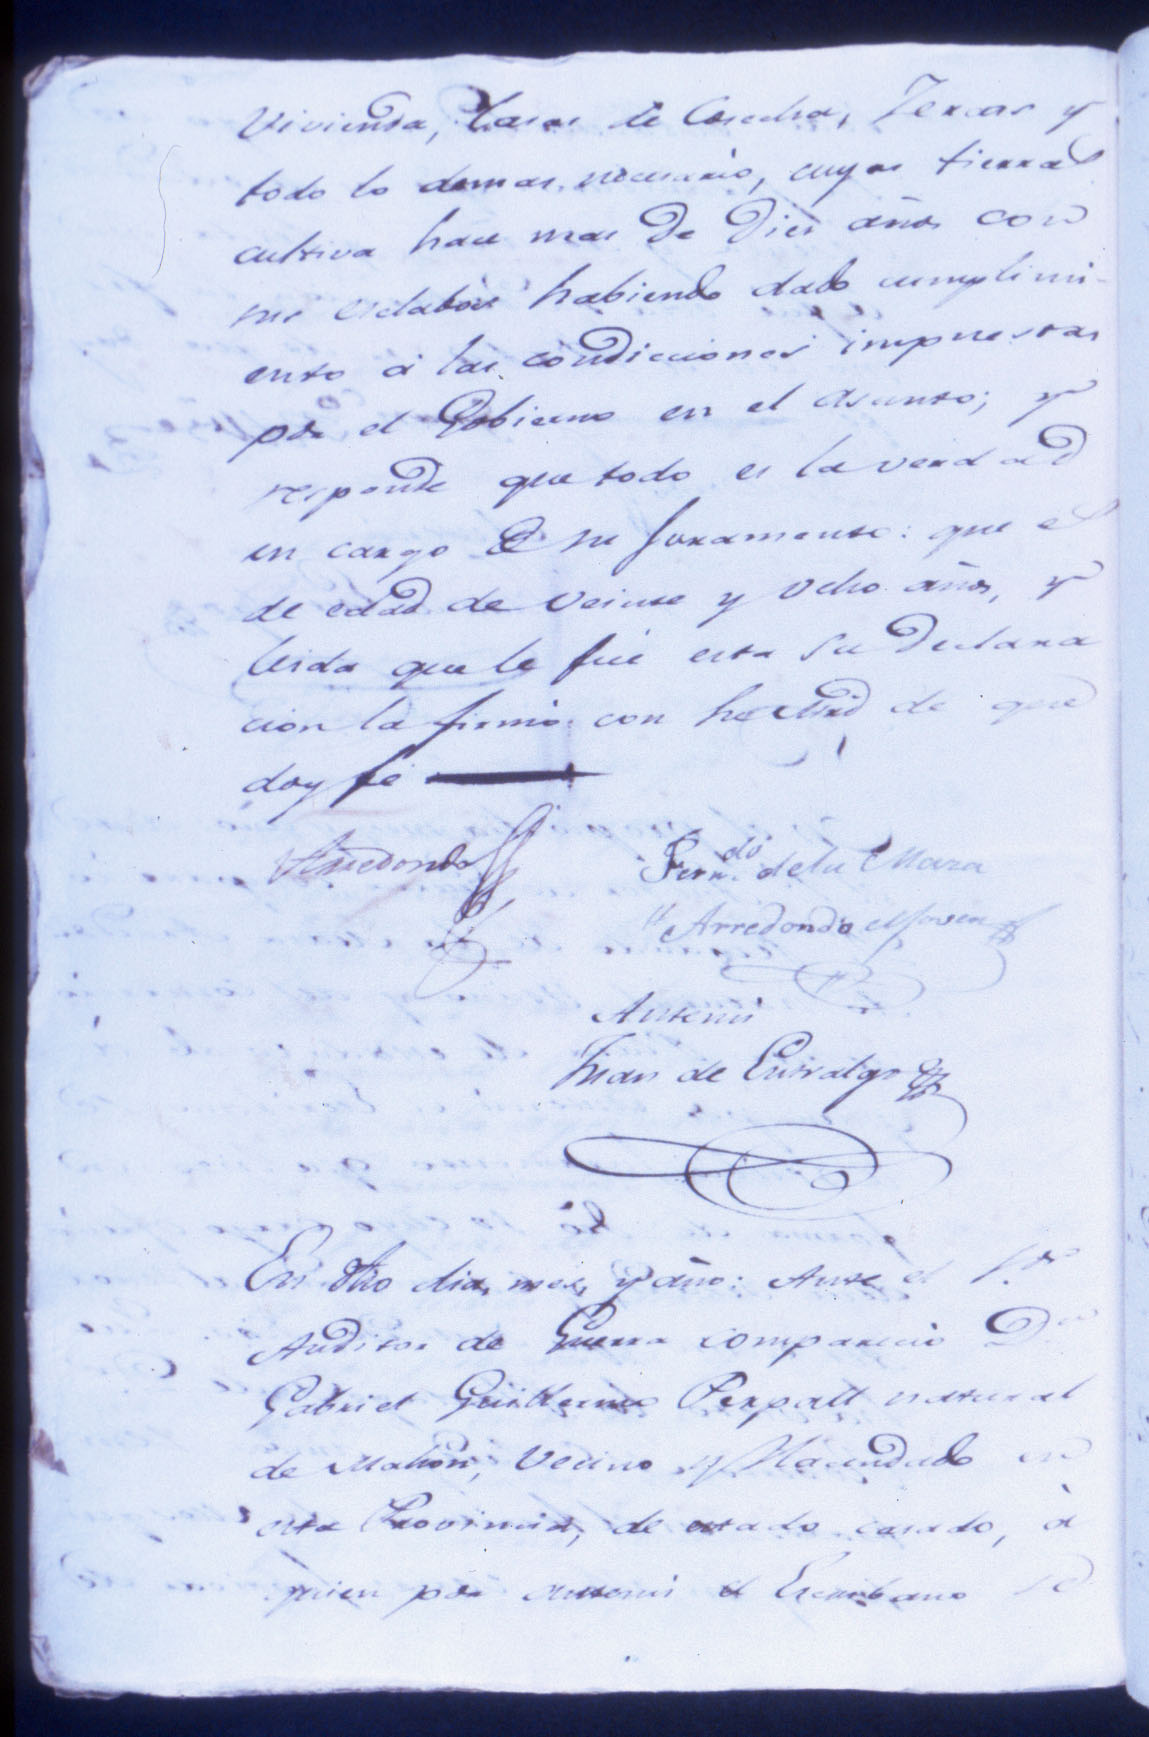 Vivienda, Casas de Cosecha, Zercas y
todo lo demas necesario, cuyas tierras
cultiva hace mas de Dies años con
sus esclabos habiendo dado cumplimi-
ento á las condicciones impuestas
por el Gobierno en el asunto; y
responde que todo es la verdad
en cargo de su Juramento: que es
de edad de veinte y ocho años, y
leida que le fué esta su Declara
cion la firmó con su de que
doy fé
Arredondo
Fern.do de la Maza
Arredondo el Joven
Antemi
Juan de Entralgo
En dho dia, mes, y año: Ante el S.or
Auditor de Guerra comparecio D.n
Gabriel Guillermo Perpall natural
de Mahon, Vecino y Hacendado en
esta Provincia, de estado casado, á
quien por antemi el Escribano se